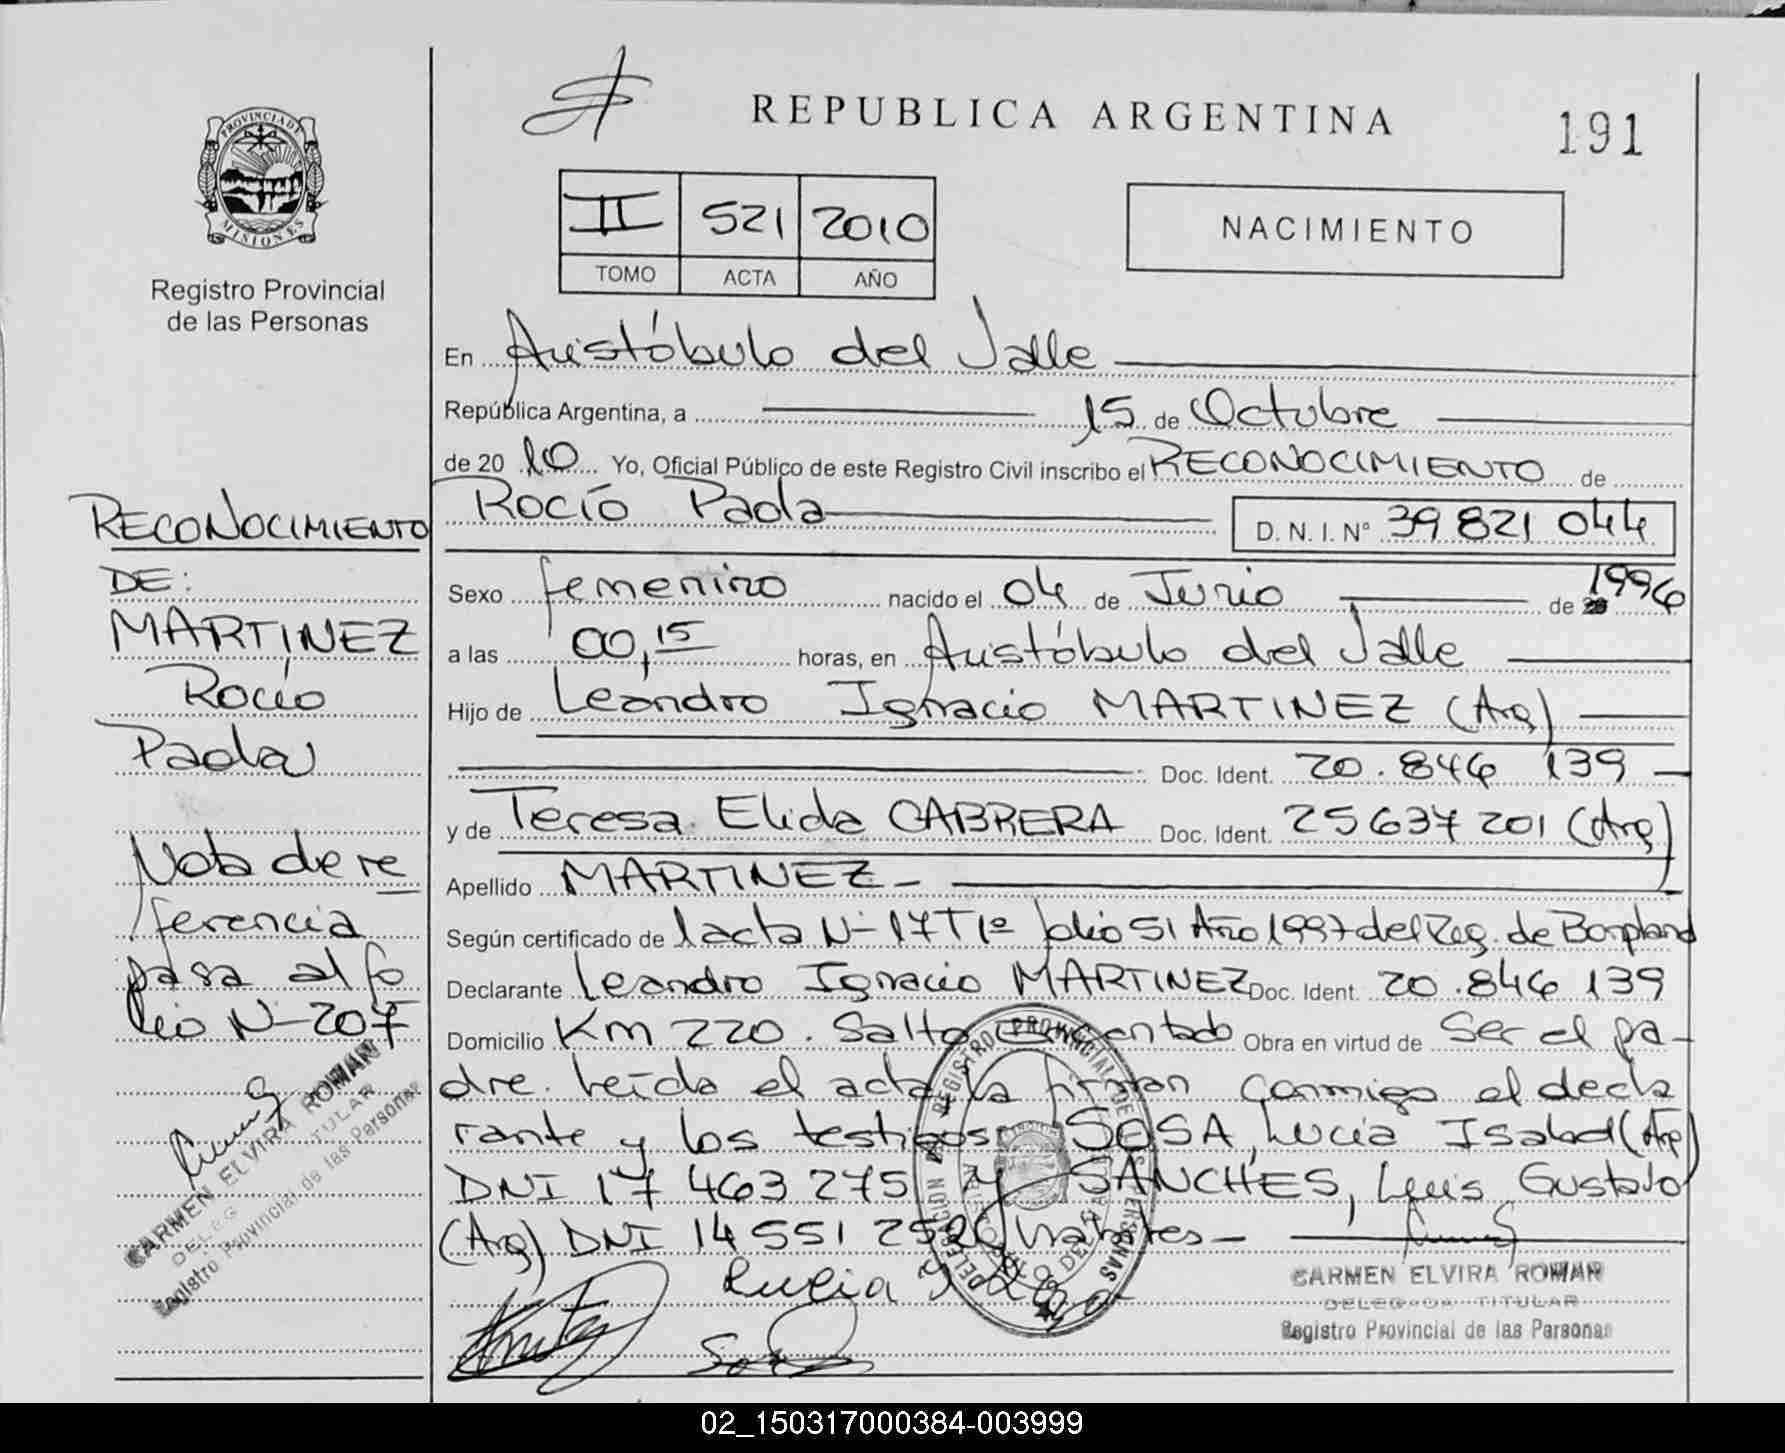 PROVINCIA DE
MISIONES
Registro Provincial
de las Personas
REPUBLICA ARGENTINA
191
II 521 2010
TOMO ACTA AÑO
NACIMIENTO
En Aristóbulo del Valle
República Argentina, a 15 de Octubre
de 20 10 Yo, Oficial Público de este Registro Civil inscribo el RECONOCIMIENTO de
Rocío Paola D. N. I. Nº 39 821 044
Sexo femenino nacido el 04 de Junio de 1996
a las 00,15 horas, en Aristóbulo del Valle
Hijo de Leandro Ignacio MARTINEZ (Arg)
Doc. Ident. 20.846 139
y de Teresa Elida CABRERA Doc. Ident. 25 637 201 (Arg)
Apellido MARTINEZ-
Según certificado de l acta Nº 17 T 1º folio 51 Año 1997 del Reg. de Bonpland
Declarante Leandro Ignacio MARTINEZ Doc. Ident. 20.846 139
Domicilio Km 220. Salto Encantado Obra en virtud de Ser el pa-
dre. Leída el acta la firman conmigo el decla
rante y los testigos SOSA, Lucia Isabel (Arg)
DNI 17 463 275 y SANCHES, Luis Gustavo
(Arg) DNI 14 551 252
Lucia
CARMEN ELVIRA ROMAN
DELEGADA TITULAR
Registro Provincial de las Personas
RECONOCIMIENTO
DE:
MARTINEZ
Rocío
Paola
Nota de re
ferencia
pasa al fo
lio Nº 207
CARMEN ELVIRA ROMAN
TITULAR
Registro Provincial de las Personas
REGISTRO PROVINCIAL DE LAS PERSONAS
02_150317000384-003999